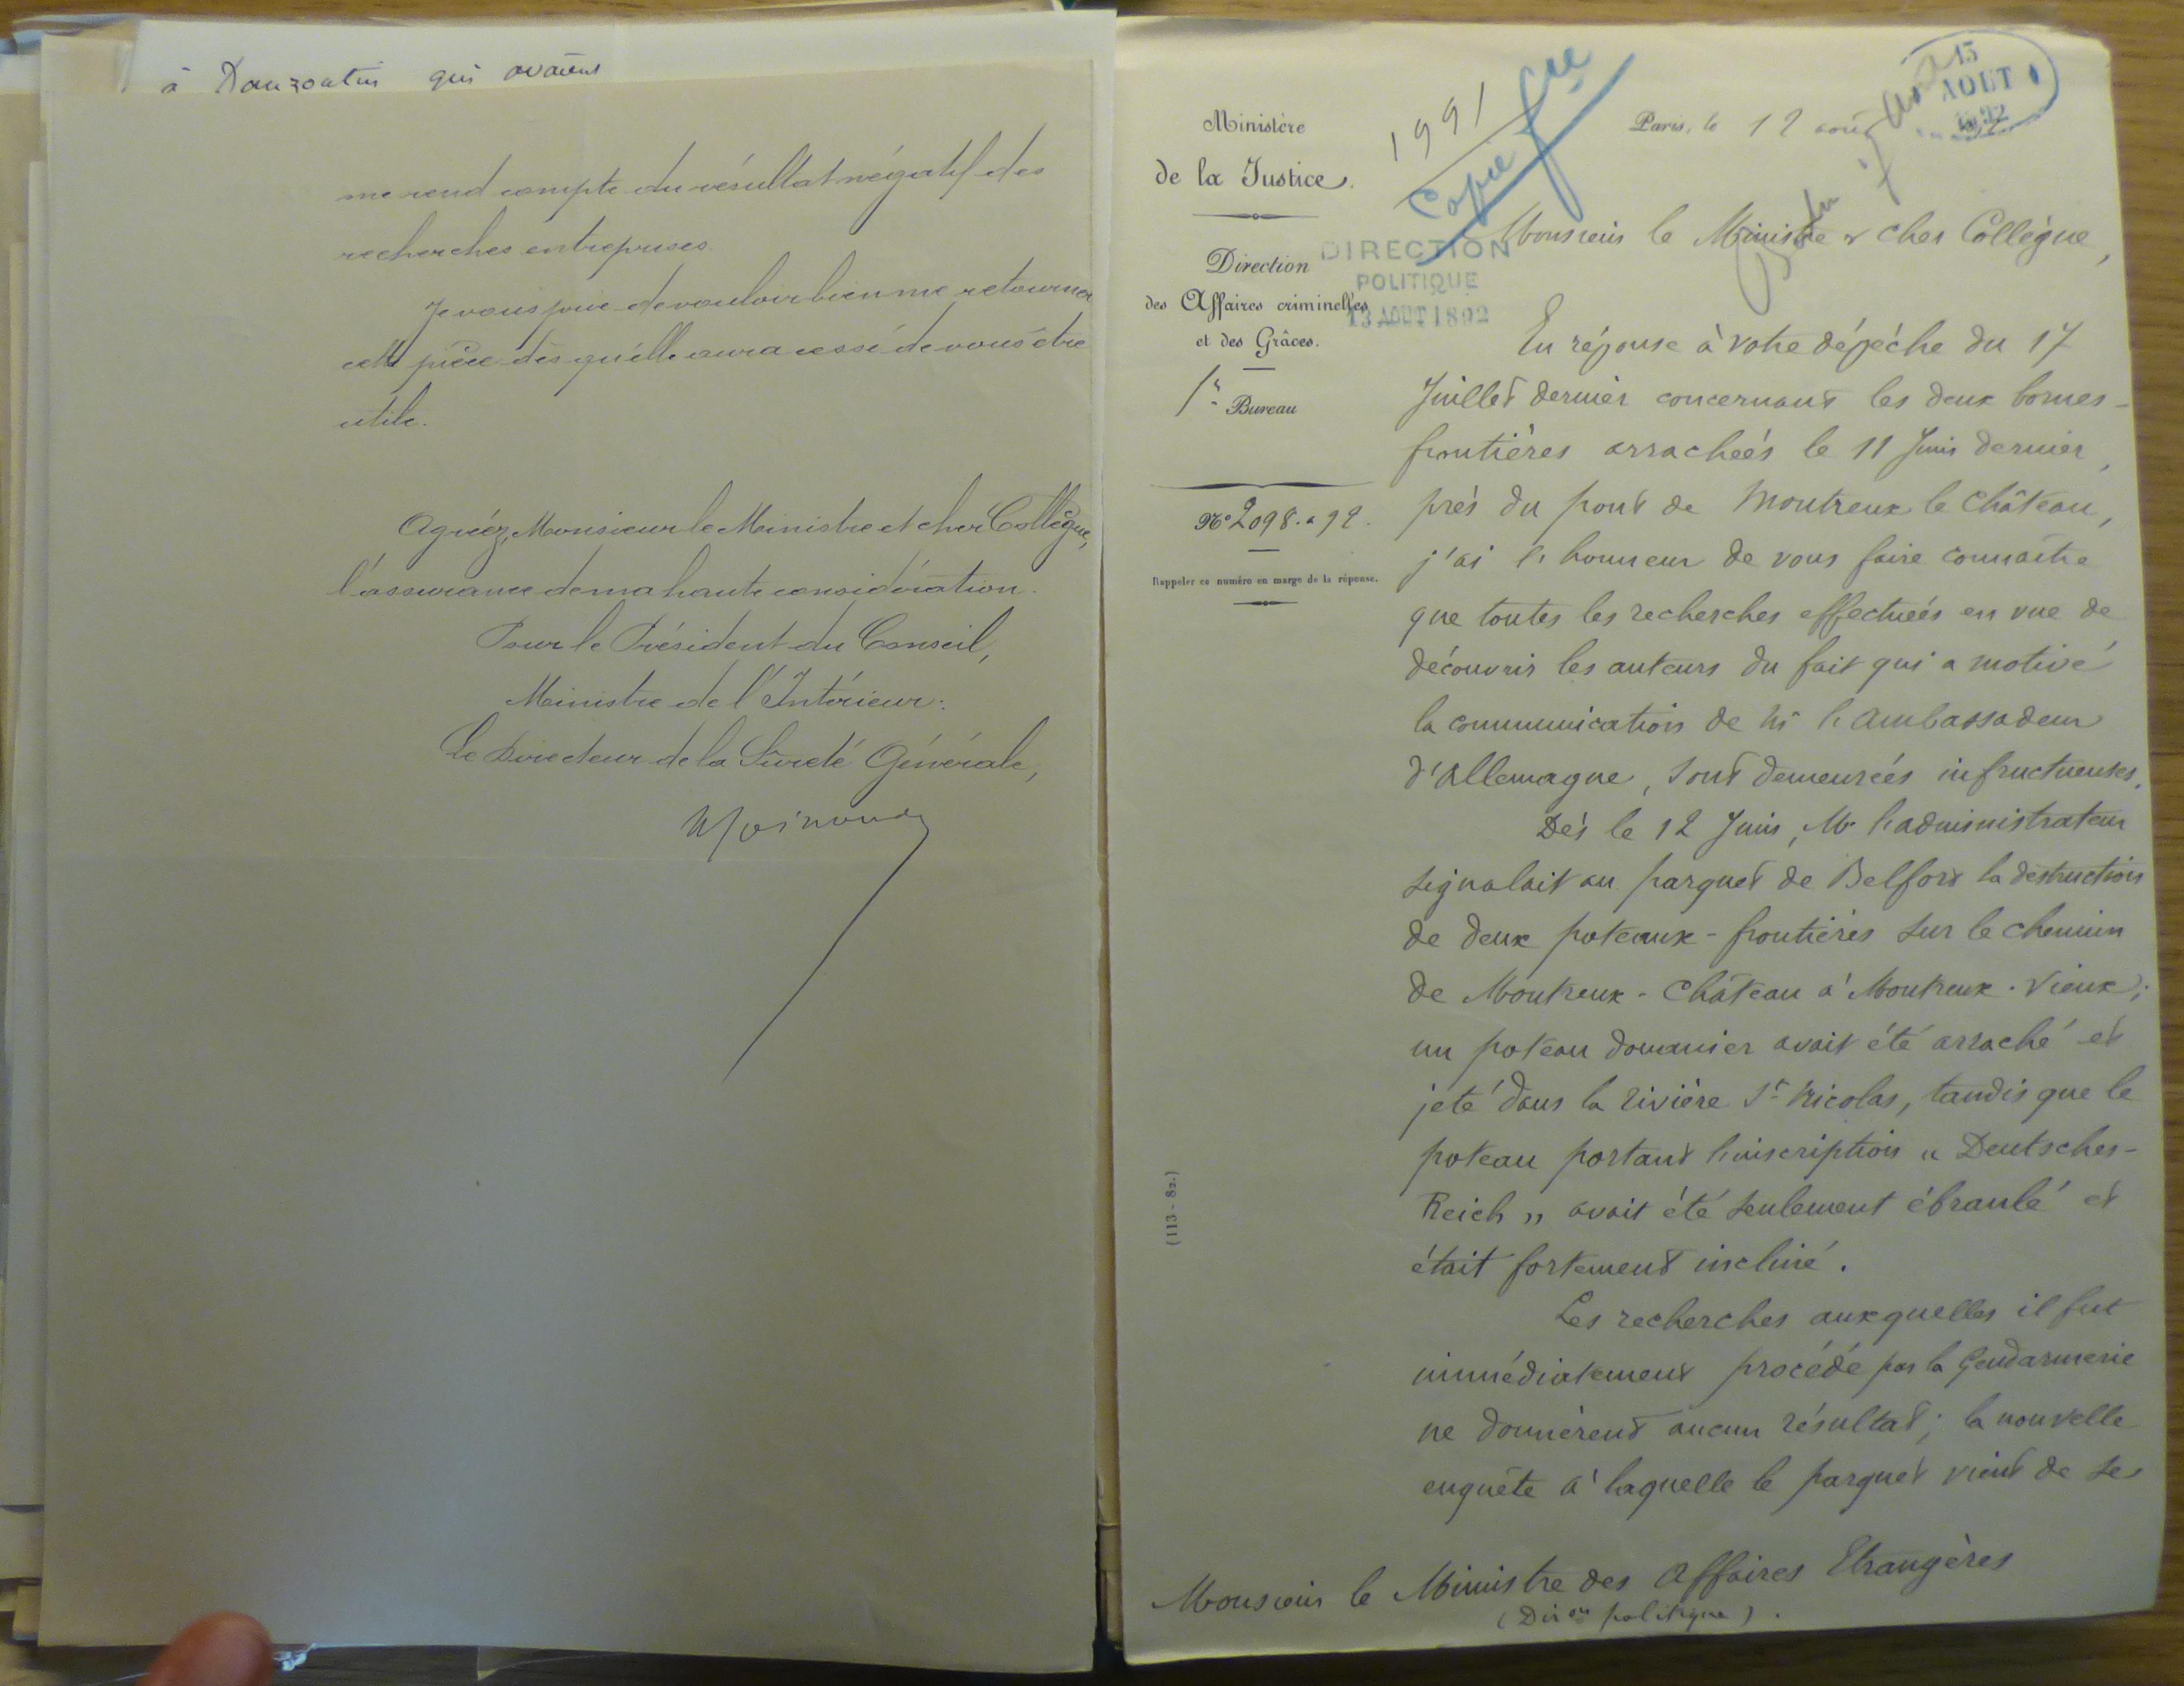 à Danzoatin qui avaient
me rend compte du résultat négatif des
recherches entreprises.
Je vous prie de vouloir bien me retourner
cette pièce dès qu'elle aura cessé de vous être
utile.
Agréez, Monsieur le Ministre et cher Collègue,
l'assurance de ma haute considération.
Pour le Président du Conseil,
Ministre de l'Intérieur:
Le Directeur de la Sûreté Générale,
Ministère
de la Justice.
Direction
des Affaires criminelles
et des Grâces.
1er Bureau
No 2098. a 92.
Rappeler ce numéro en marge de la réponse.
(113-82.)
1991
Copie
DIRECTION
POLITIQUE
13 AOUT 1892
13
AOUT
1892
Paris, le 12 août
Monsieur le Ministre & cher Collègue,
En réponse à votre dépêche du 17
Juillet dernier concernant les deux bornes-
frontières arrachées le 11 Juin dernier,
près du pont de Montreux le Château,
j'ai l'honneur de vous faire connaître
que toutes les recherches effectuées en vue de
découvrir les auteurs du fait qui a motivé
la communication de Mr l'ambassadeur
d'Allemagne, sont demeurées infructueuses.
Dès le 12 Juin, Mr l'administrateur
signalait au parquet de Belfort la destruction
de deux poteaux-frontières sur le chemin
de Montreux-Château à Montreux-Vieux;
un poteau douanier avait été arraché et
jeté dans la rivière St Nicolas, tandis que le
poteau portant l'inscription « Deutsches-
Reich » avait été seulement ébranlé et
était fortement incliné.
Les recherches auxquelles il fut
immédiatement procédé par la Gendarmerie
ne donnèrent aucun résultat; la nouvelle
enquête à laquelle le parquet vient de se
Monsieur le Ministre des Affaires Etrangères
(Dir on politique).